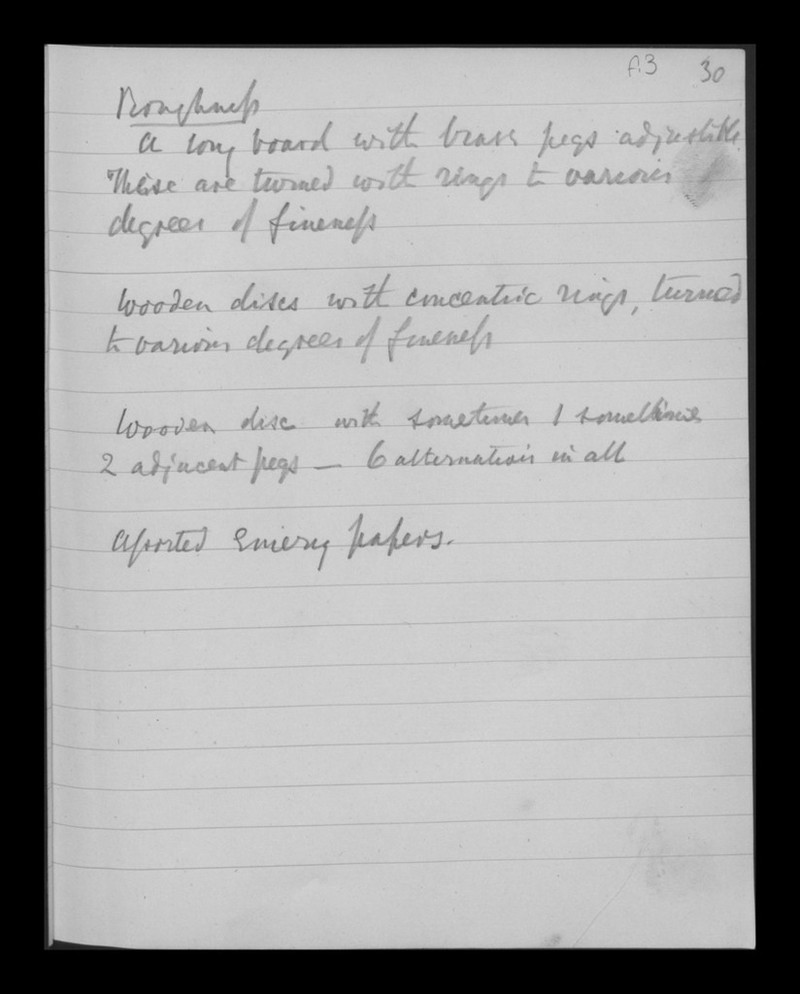 A.3 30
Roughness
A long board with brass pegs adjustible
These are turned with rings to various
degrees of fineness
Wooden discs with concentric rings, turned
to various degrees of fineness
Wooden disc with sometimes 1 sometimes
2 adjacent pegs — 6 alternations in all
Assorted Emery papers.